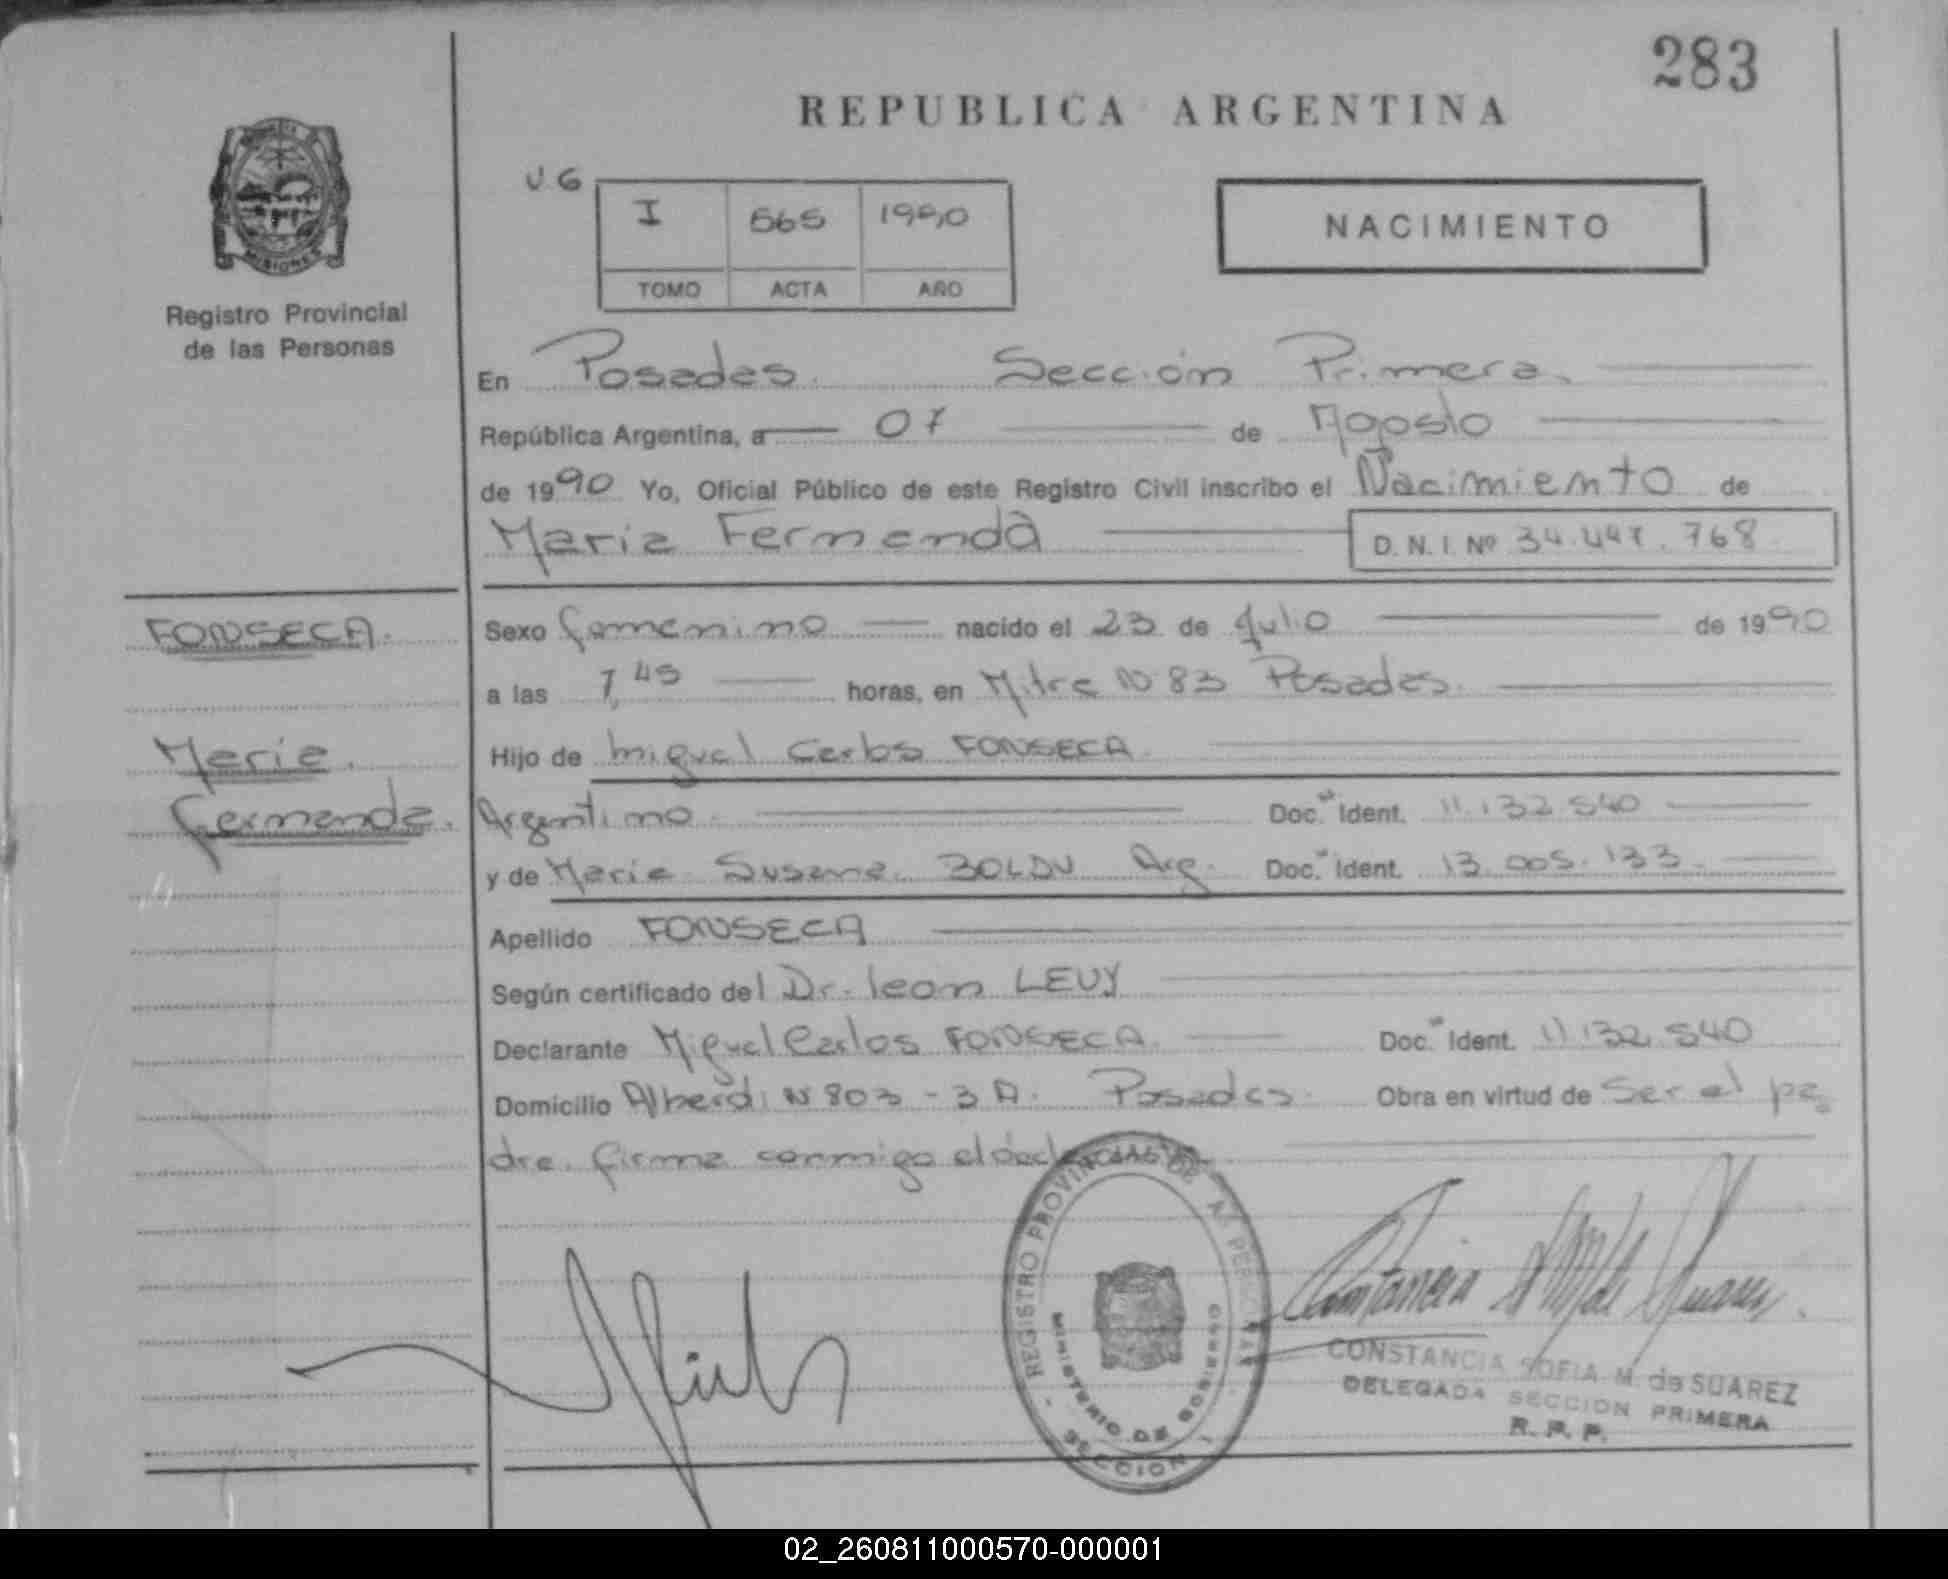 283
REPUBLICA ARGENTINA
MISIONES
Registro Provincial
de las Personas
V.6
I 565 1990
TOMO ACTA AÑO
NACIMIENTO
En Posadas. Sección Primera.
República Argentina, a 07 de Agosto
de 1990 Yo, Oficial Público de este Registro Civil inscribo el Nacimiento de
Maria Fernanda D. N. I. Nº 768
FONSECA.
Sexo femenino nacido el 23 de Julio de 1990
a las 7,45 horas, en Mitre Nº 83 Posadas.
Maria.
Hijo de Miguel Carlos FONSECA
Fernanda.
Argentino. Doc. Ident. 11.132.540
y de Maria Susana BOLDU Arg. Doc. Ident. 13.005.133
Apellido FONSECA
Según certificado del Dr. Leon LEVY
Declarante Miguel Carlos FONSECA Doc. Ident. 11.132.540
Domicilio Alberdi Nº 803 - 3 A. Posadas. Obra en virtud de Ser el pa
dre. firma conmigo el
REGISTRO PROVINCIAL DE PERSONAS
MINISTERIO DE GOBIERNO
SECCION I
CONSTANCIA SOFIA M. de SUAREZ
DELEGADA SECCION PRIMERA
R. P. P.
02_260811000570-000001